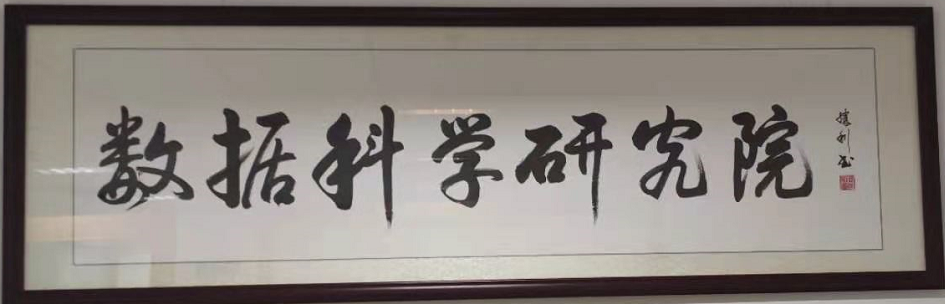 数据科学研究院
胜利书